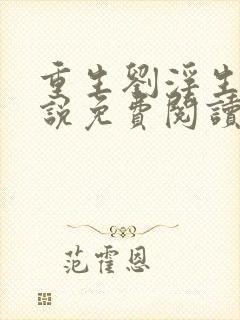 重生劉淫生
說免費閱讀
范霍恩